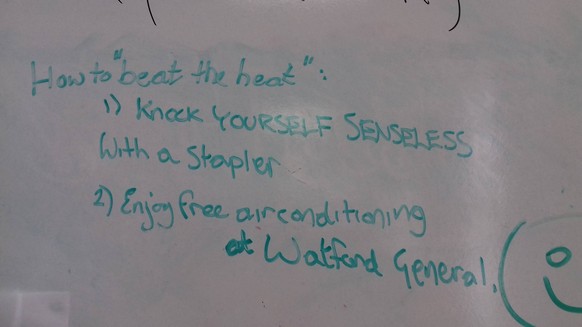 How to "beat the heat":
1) Knock YOURSELF SENSELESS
With a Stapler
2) Enjoy free airconditioning
at Watford General.